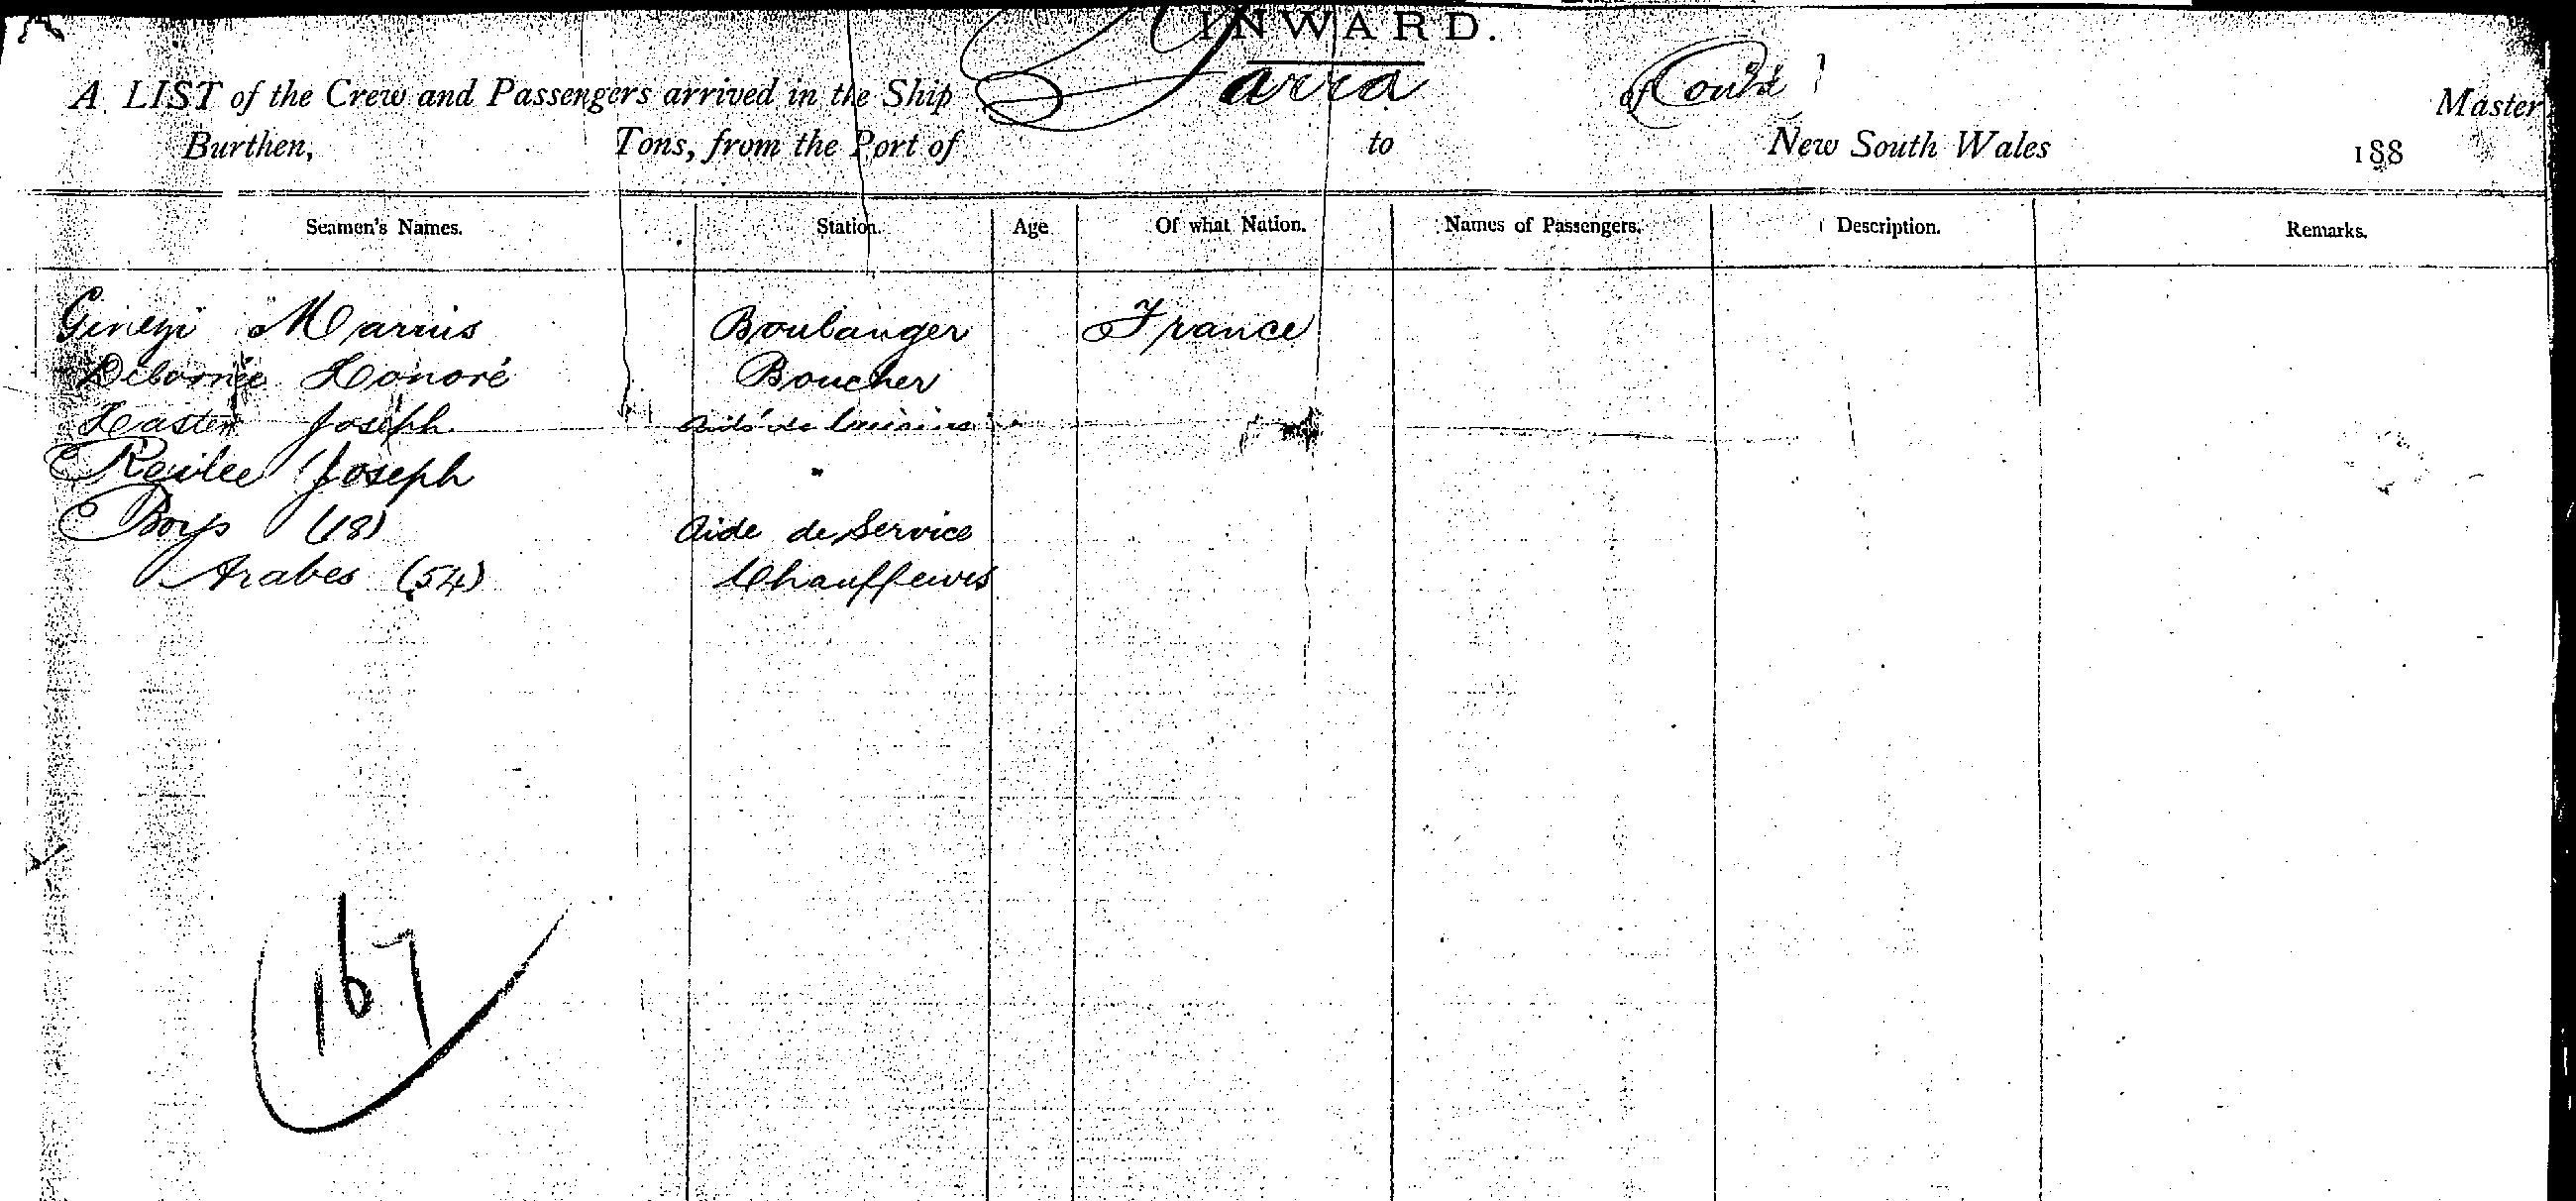 INWARD.
A LIST of the Crew and Passengers arrived in the Ship Yarra of Master
Burthen, Tons, from the Port of to New South Wales 188
Seamen's Names. Station. Age Of what Nation. Names of Passengers. Description. Remarks.
Marius Boulanger France
Honoré Boucher
Joseph Aide de Cuisine "
Joseph "
Boys (18) Aide de Service
Arabes (54) Chauffeurs
167